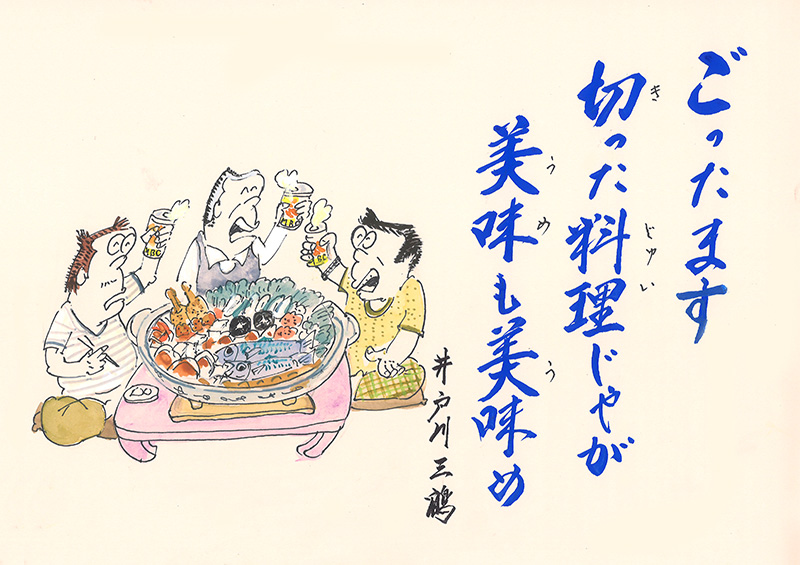 ごったます
き じゅい
切った料理じゃが
うめ う
美味も美味め
井戸川 三
ABC
ABC
ABC